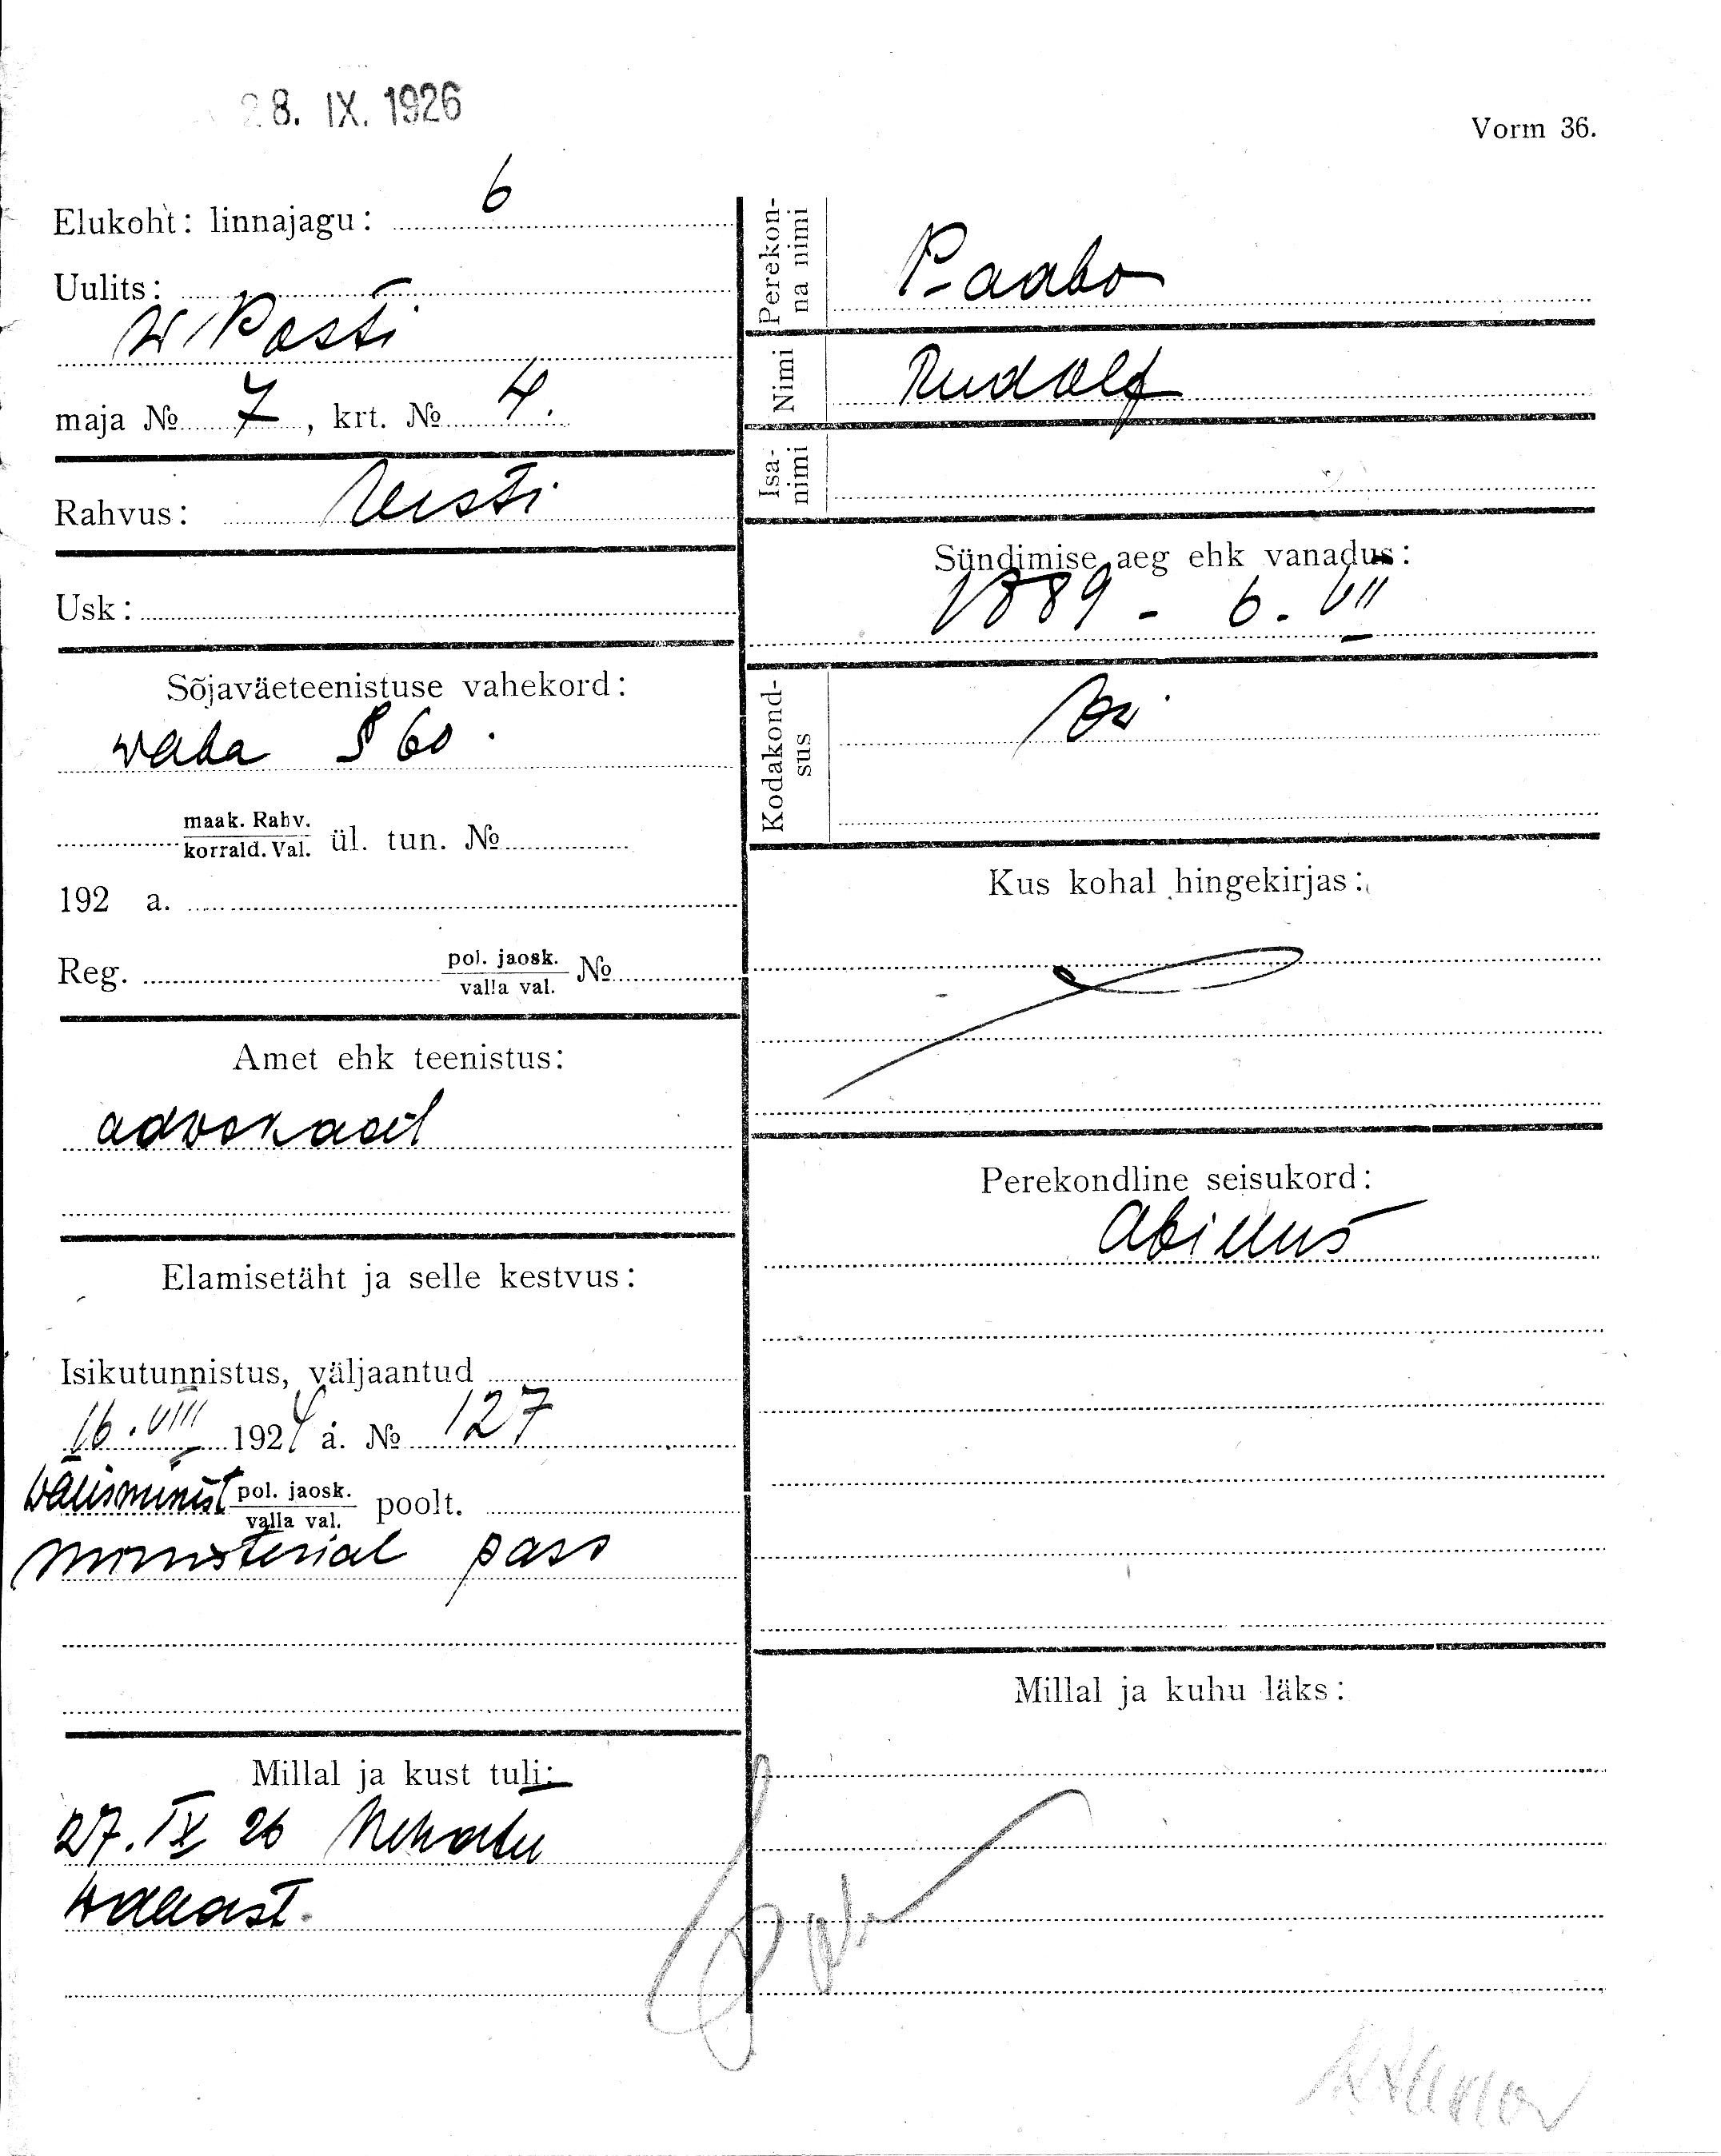 28. IX. 1926
Vorm 36.
Elukoht: linnajagu: 6
Uulits:
W. Posti
maja № 7, krt. № 4.
Rahvus: Eesti
Usk:
Sõjaväeteenistuse vahekord:
waba § 60.
maak. Rahv.
korrald. Val. ül. tun. №
192 a.
Reg. pol. jaosk.
valla val. №
Amet ehk teenistus:
advokaat
Elamisetäht ja selle kestvus:
Isikutunnistus, väljaantud
16. VIII 1924 a. № 127
Välisminist pol. jaosk.
valla val. poolt.
ministerial pass
Millal ja kust tuli:
27. IX 26 Nehatu
wallast.
Perekon-
na nimi
Paabo
Nimi
Rudolf
Isa-
nimi
Sündimise aeg ehk vanadus:
1889 - 6. VII
Kodakond-
sus
Kus kohal hingekirjas:
Perekondline seisukord:
Abielus
Millal ja kuhu läks: